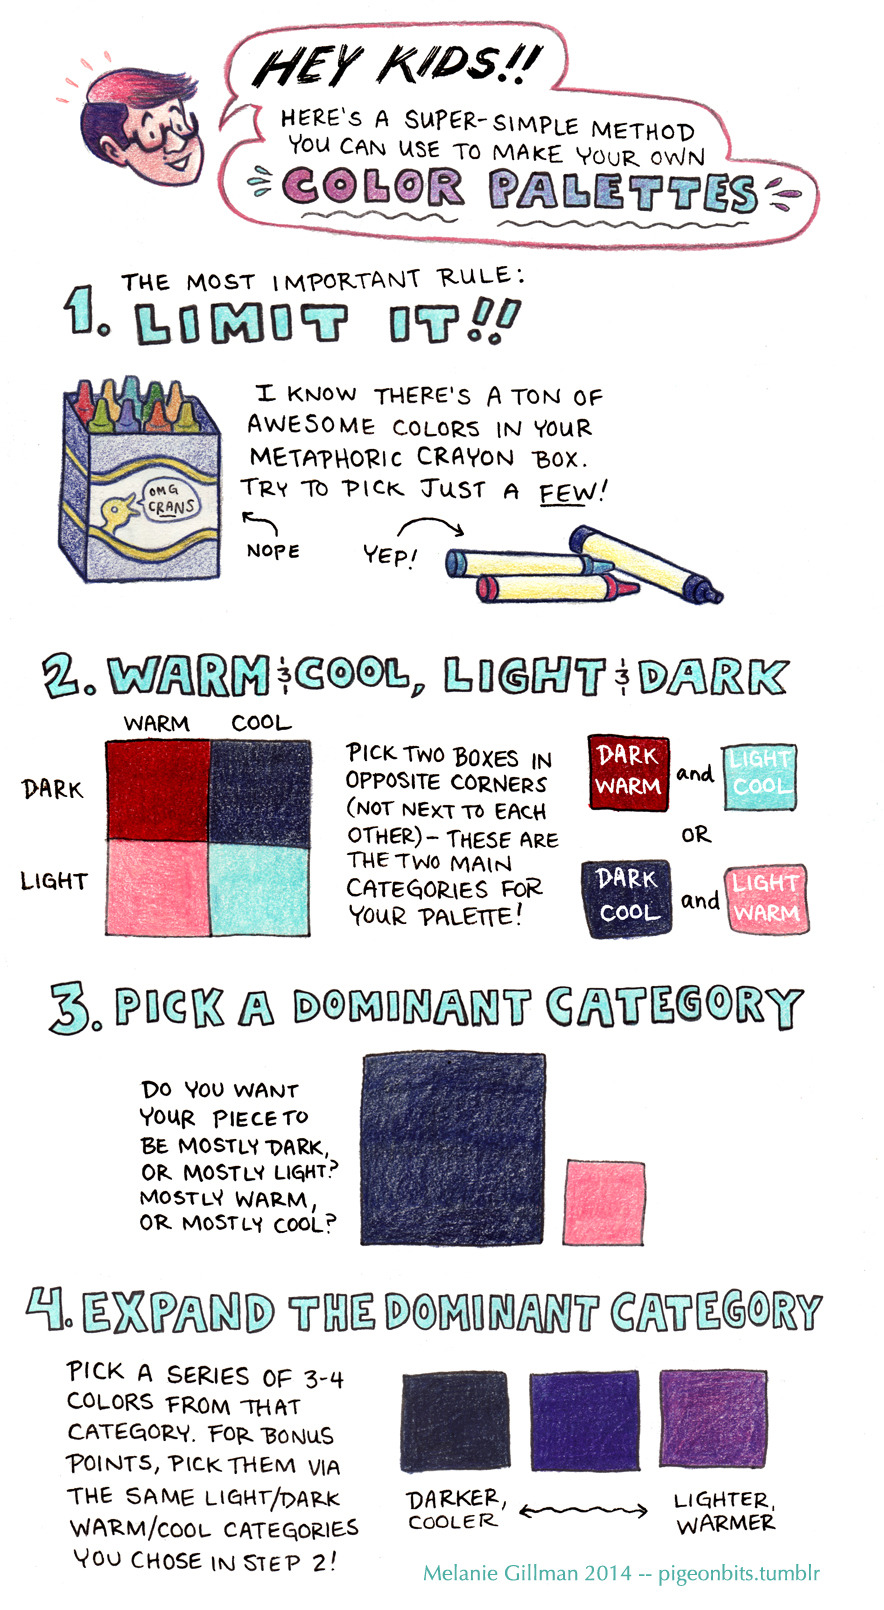 HEY KIDS!!
HERE'S A SUPER-SIMPLE METHOD
YOU CAN USE TO MAKE YOUR OWN
COLOR PALETTES
1. THE MOST IMPORTANT RULE:
LIMIT IT!!
I KNOW THERE'S A TON OF
AWESOME COLORS IN YOUR
METAPHORIC CRAYON BOX.
TRY TO PICK JUST A FEW!
OMG
CRANS
NOPE
YEP!
2. WARM & COOL, LIGHT & DARK
WARM COOL
DARK
LIGHT
PICK TWO BOXES IN
OPPOSITE CORNERS
(NOT NEXT TO EACH
OTHER) – THESE ARE
THE TWO MAIN
CATEGORIES FOR
YOUR PALETTE!
DARK
WARM
and
LIGHT
COOL
OR
DARK
COOL
and
LIGHT
WARM
3. PICK A DOMINANT CATEGORY
DO YOU WANT
YOUR PIECE TO
BE MOSTLY DARK,
OR MOSTLY LIGHT?
MOSTLY WARM,
OR MOSTLY COOL?
4. EXPAND THE DOMINANT CATEGORY
PICK A SERIES OF 3-4
COLORS FROM THAT
CATEGORY. FOR BONUS
POINTS, PICK THEM VIA
THE SAME LIGHT/DARK
WARM/COOL CATEGORIES
YOU CHOSE IN STEP 2!
DARKER,
COOLER
LIGHTER,
WARMER
Melanie Gillman 2014 -- pigeonbits.tumblr